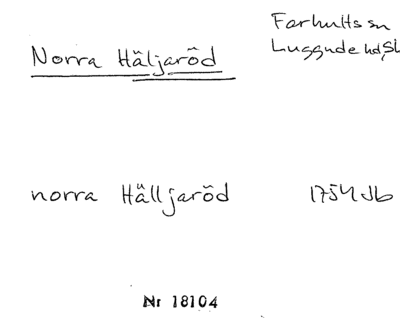 Farhults sn
Norra Häljaröd Luggude hd, Sk
norra Hälljaröd 1754 Jb
Nr 18104